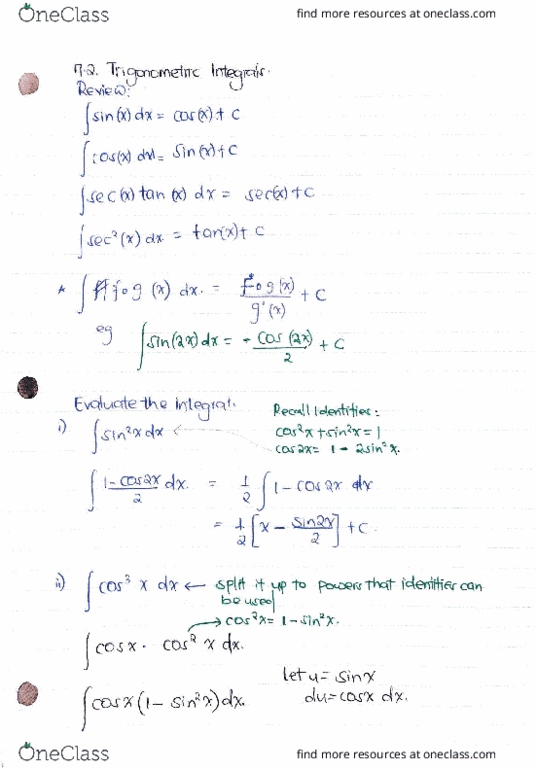 OneClass
find more resources at oneclass.com
7.2. Trigonometric Integrals.
Review:
∫sin(x) dx = cos(x) + C
∫cos(x) dx = sin(x) + C
∫sec(x) tan(x) dx = sec(x) + C
∫sec²(x) dx = tan(x) + C
* ∫ fog (x) dx. = Fog(x) / g'(x) + C
eg ∫sin(2x) dx = - cos(2x) / 2 + C
Evaluate the integral.
Recall identities:
i) ∫sin²x dx
cos²x + sin²x = 1
cos2x = 1 - 2sin²x.
∫ 1-cos2x / 2 dx. = 1/2 ∫ 1 - cos2x dx
= 1/2 [x - sin2x / 2] + C.
ii) ∫cos³ x dx ← split it up to powers that identities can
be used
→ cos²x = 1 - sin²x.
∫cosx · cos² x dx.
let u = sinx
du = cosx dx.
∫cosx (1 - sin²x) dx.
OneClass
find more resources at oneclass.com